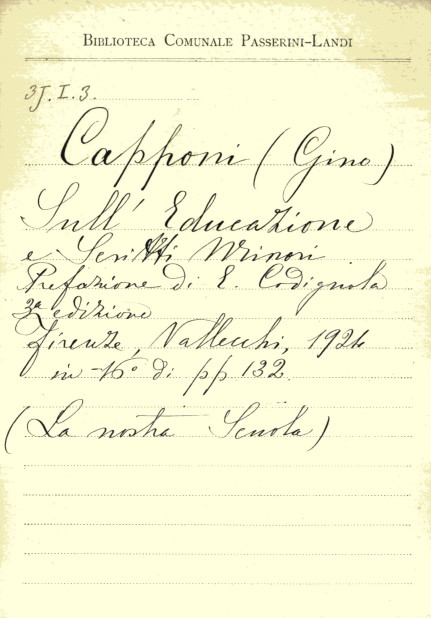 BIBLIOTECA COMUNALE PASSERINI-LANDI
3J.I.3.
Capponi (Gino)
Sull' Educazione
e Scritti Minori
Prefazione di E. Codignola
3ª edizione
Firenze, Vallecchi, 1924
in-16° di pp 132.
(La nostra Scuola)